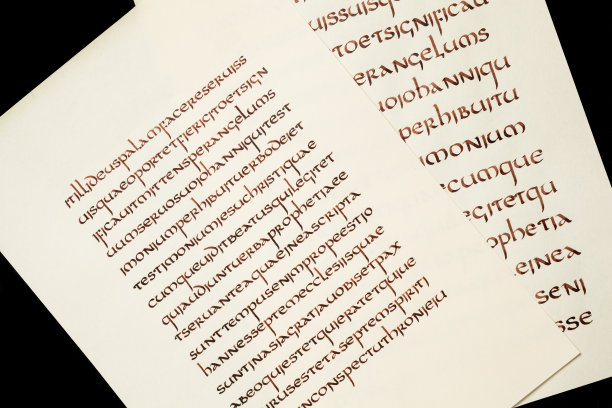 tillideuspalamfacereseruiss
uisquaeoportetfiericitoetsign
ificauitmittensperangelums
uumseruosuoiohanniquitest
imoniumperhibuituerbodeiet
testimoniumiesuchristiquae
cumqueuiditbeatusquilegitet
quiaudiuntuerbaprophetiaee
tseruanteaquaeineascripta
sunttempusenimpropeestio
hannesseptemecclesiisquae
suntinasiagratiauobisetpax
abeoquiestetquieratetquiue
urusestetaseptemspiriti
inconspectuthronieiu
uissuisq
toetsignificau
erangelums
uoiohanniqu
perhibuitu
imonium
ecumque
egitetqu
ophetia
einea
seni
sse